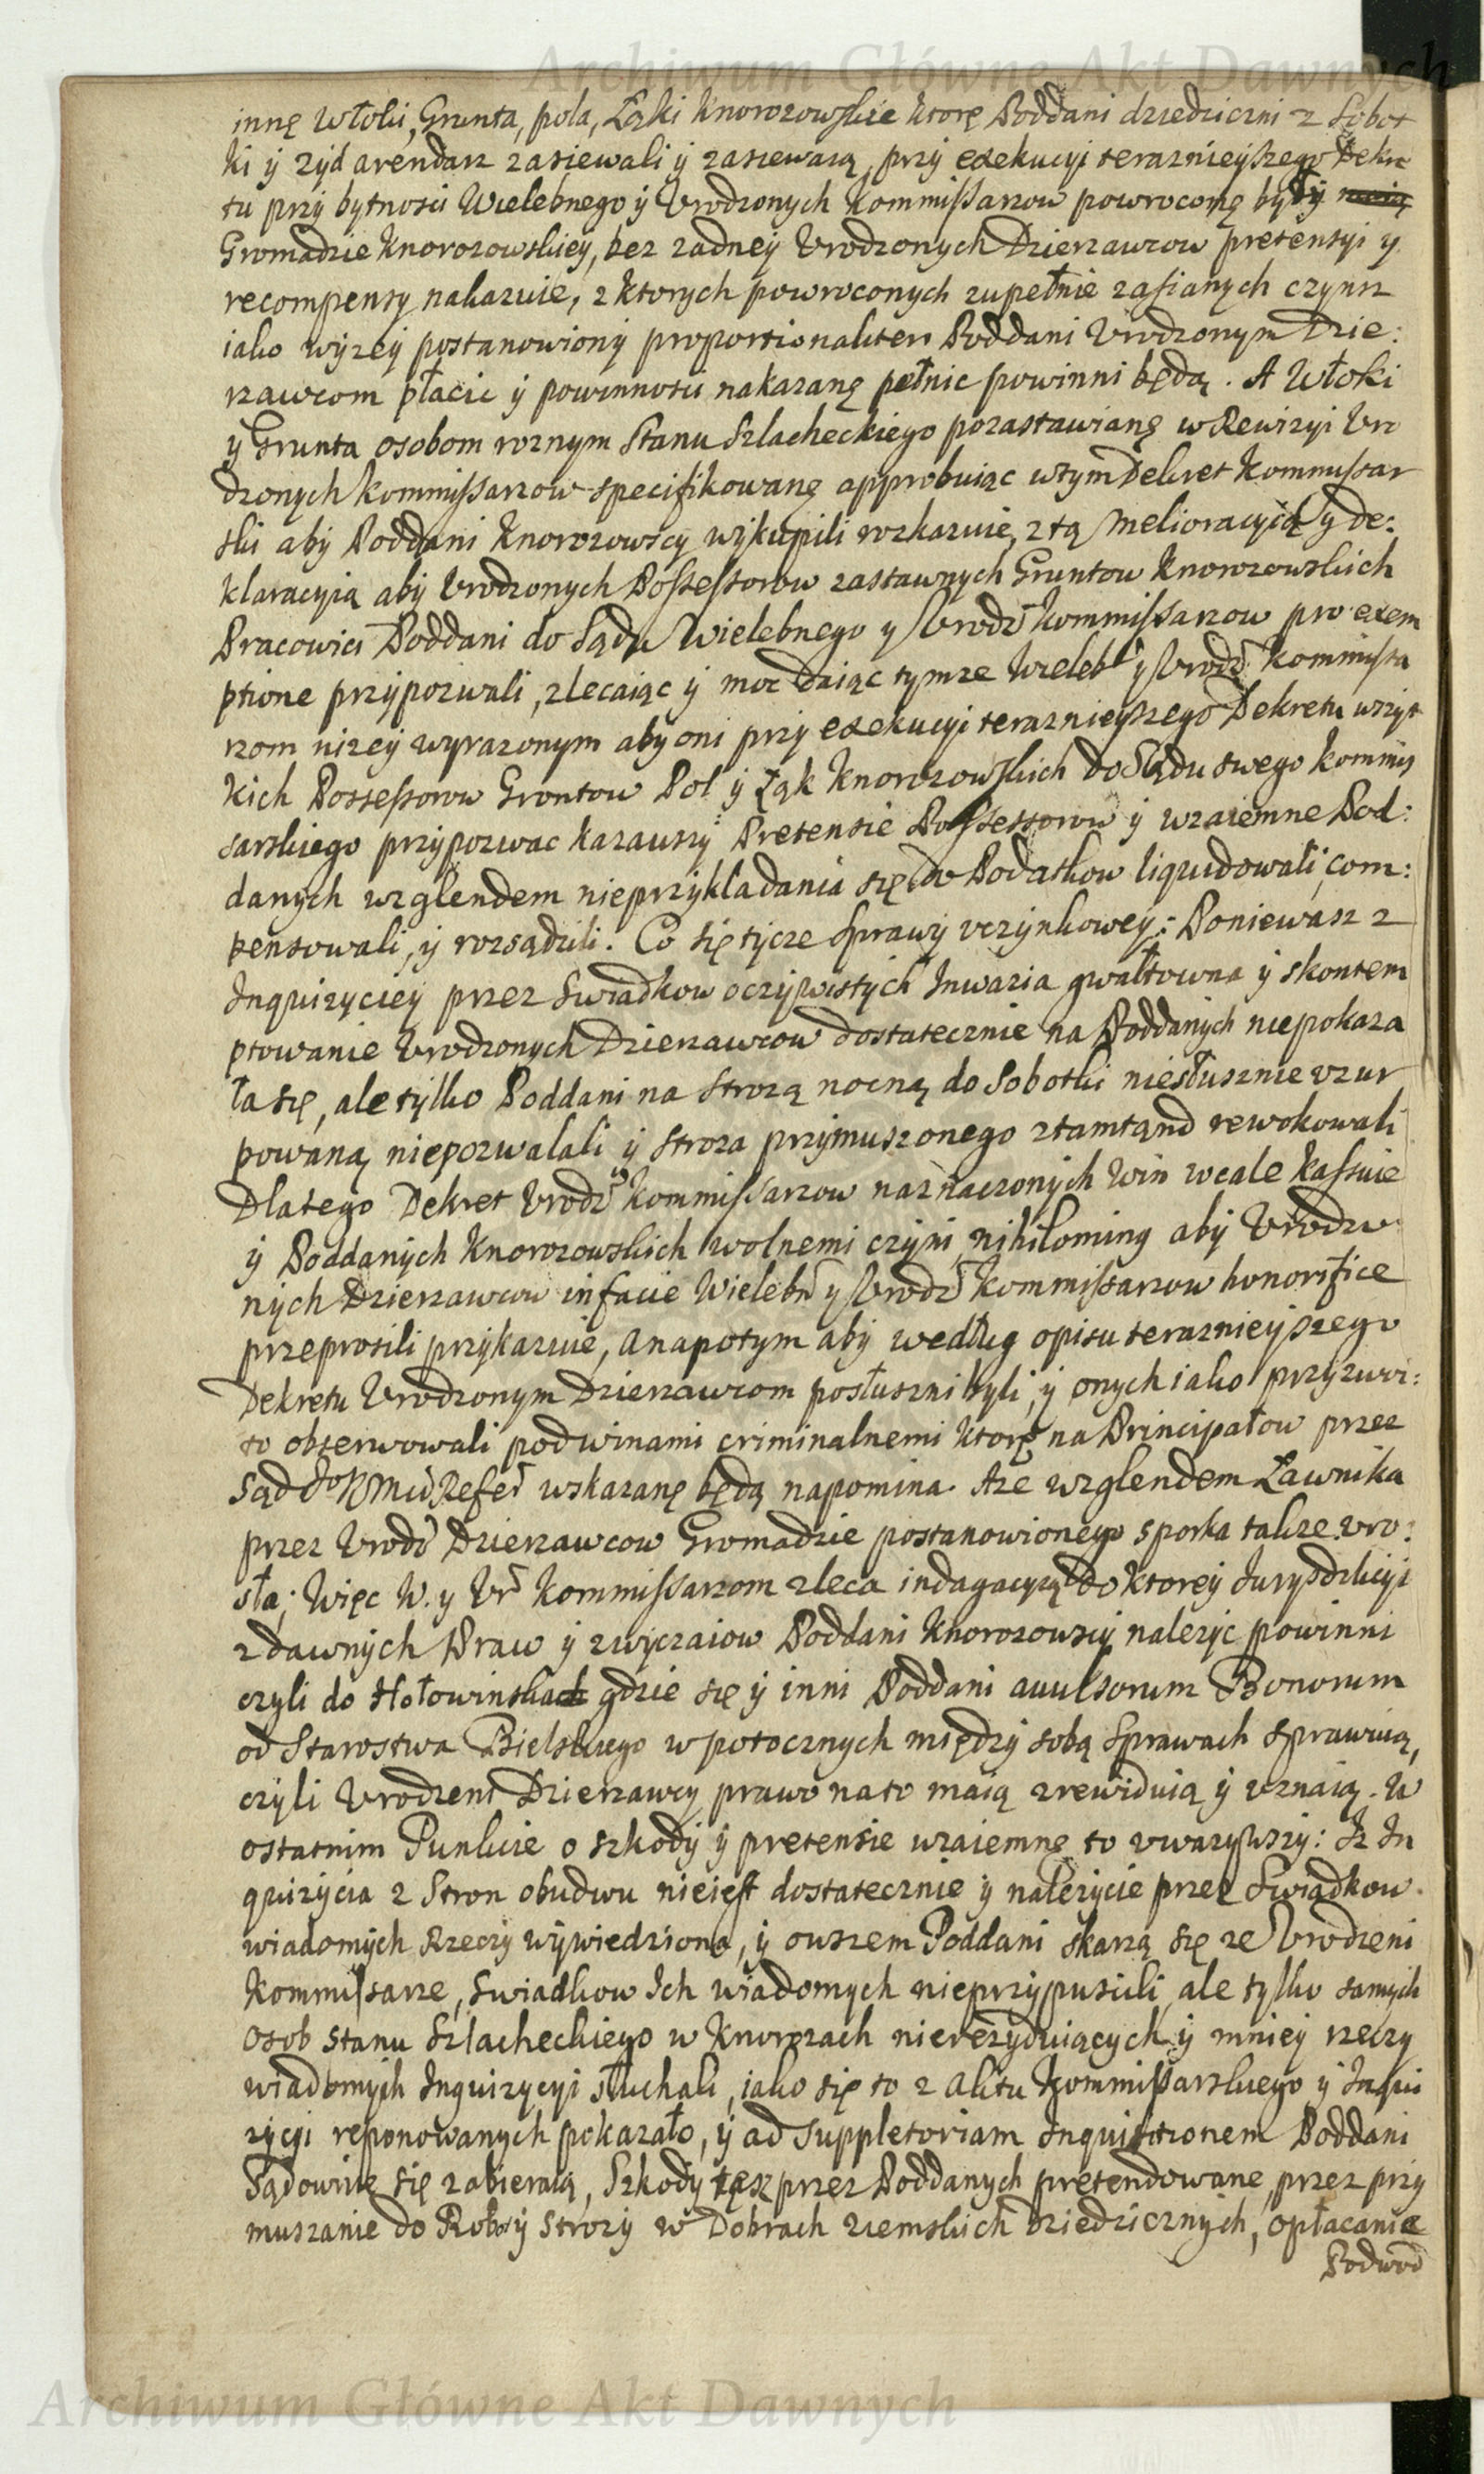 Archiwum Główne Akt Dawnych
innę Włoki, Grunta, pola, Łąki Knorozowskie ktorę Poddani dziedziczni z Sobot
ki ÿ zÿd arendarz zasiewali ÿ zasiewaią, przÿ exekucÿi teraznieÿszego Dekre
tu przÿ bÿtnosci Wielebnego ÿ Vrodzonych Kommissarzow powroconę bÿłÿ
Gromadzie Knorozowskieÿ, bez zadneÿ Vrodzonych Dzierzawcow pretensÿi y
recompensy nakazuie, z ktorych powroconych zupełnie zasianych czÿnsz
iako wÿzeÿ postanowionÿ proportionaliter Poddani Vrodzonym Dzie:
rzawcom płacic ÿ powinnosci nakazanę pełnic powinni będą. A Włoki
ÿ Grunta osobom roznym Stanu Szlacheckiego pozastawianę w Rewizÿi Vro
dzonych Kommissarzow specifikowanę approbuiąc w tym Dekret Kommissar
ski abÿ Poddani Knorozowscÿ wÿkupili rozkazuie, z tą melioracyią y de:
klaracyią abÿ Vrodzonych Possessorow zastawnych Gruntow Knorozowskich
Pracowici Poddani do Sądu Wielebnego y Vrodz Kommissarzow pro exem
ptione przÿpozwali, zlecaiąc ÿ moc daiąc tymze Wieleb ÿ Vrodz Kommissa
rzom nizeÿ wyrazonym aby oni przÿ exekucyi teraznieÿszego Dekretu wszÿt
kich Possessorow Grontow Pol ÿ Łąk Knorozowskich do Sądu swego Kommis
sarskiego przÿpozwac kazawszÿ Pretensie Possessorow ÿ wzaiemne Pod:
danych wzglendem nieprzÿkladania się do Podatkow liquidowali, com:
pensowali, ÿ rozsądzili. Co się tÿcze sprawÿ vczÿnkoweÿ: Poniewasz z
Inquizÿcieÿ przez Swiadkow oczÿwistÿch Inwazia gwałtowna ÿ skontem
ptowanie Vrodzonych Dzierzawcow dostatecznie na Poddanÿch niepokaza
ła się, ale tÿlko Poddani na strozą nocną do Sobotki niesłusznie vzur
powaną niepozwalali ÿ stroza przÿmuszonego ztamtąnd rewokowali
Dlatego Dekret Vrodz Kommissarzow naznaczonÿch Win wcale kassuie
ÿ Poddanÿch Knorozowskich wolnemi czÿni, nihilominq abÿ Vrodzo
nÿch Dzierzawcow in facie Wielebn y Vrodz Kommissarzow honorifice
przeprosili przÿkazuie, a napotym abÿ według opisu teraznieÿszego
Dekretu Vrodzonym Dzierzawcom posłuszni bÿli, ÿ onych iako przyzwoi:
to obserwowali pod winami criminalnemi ktorę na Principałow przez
Sąd JoKMci Refer wskazanę będą napomina. Aze wzglendem Ławnika
przez Vrodz Dzierzawcow Gromadzie postanowionego sporka takze vro:
sła; Więc W. y Vr Kommissarzom zleca indagacyią do ktoreÿ Jurysdikcÿi
z dawnÿch Praw ÿ zwÿczaiow Poddani Knorozowscÿ nalezÿc powinni
czÿli do Hołowinska gdzie się ÿ inni Poddani auulsorum Bonorum
od Starostwa Bielskiego w potocznych międzÿ sobą sprawach sprawuią,
czÿli Vrodzeni Dzierzawcy prawo na to maią zrewiduią ÿ vznaią. W
ostatnim Punkcie o szkodÿ ÿ pretensie wzaiemnę to vwazÿwszÿ: Iz In
quizÿcia z Stron obudwu nieiest dostatecznie ÿ nalezÿcie przez Swiadkow
wiadomÿch Rzeczÿ wÿwiedziona, ÿ owszem Poddani skarzą się ze Vrodzeni
Kommissarze, Swiadkow Ich wiadomych nieprzÿpuscili, ale tylko samÿch
osob stanu Szlacheckiego w Knorozach nierezÿduiących ÿ mnieÿ rzeczy
wiadomÿch Inquizycyi słuchali, iako się to z Aktu Kommissarskiego ÿ Inqui
zÿcÿi reponowanÿch pokazało, ÿ ad suppletoriam Inquisitionem Poddani
Sądownie się zabieraią, Szkodÿ tęsz przez Poddanÿch pretendowane, przez prÿ
muszanie do Robot ÿ strozÿ w Dobrach ziemskich Dziedzicznÿch, opłacanie
Podwod
Archiwum Główne Akt Dawnych